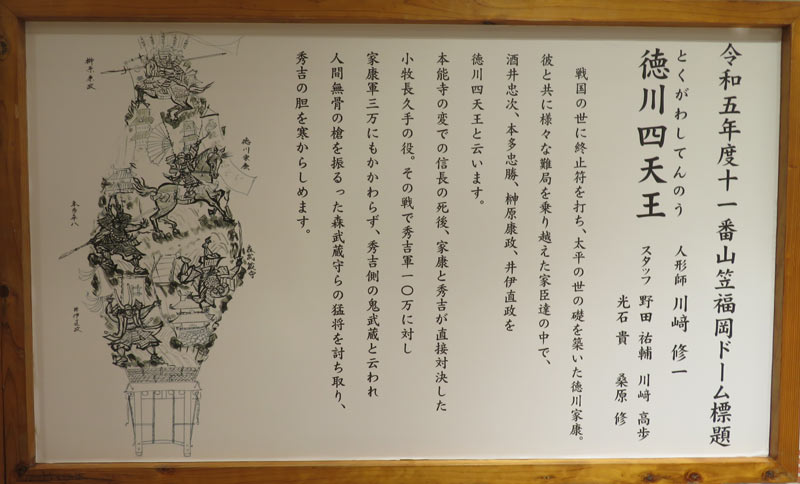 令和五年度十一番山笠福岡ドーム標題
とくがわしてんのう
徳川四天王
人形師 川﨑 修一
スタッフ 野田 祐輔 川﨑 高歩
光石 貴 桑原 修
戦国の世に終止符を打ち、太平の世の礎を築いた徳川家康。
彼と共に様々な難局を乗り越えた家臣達の中で、
酒井忠次、本多忠勝、榊原康政、井伊直政を
徳川四天王と云います。
本能寺の変での信長の死後、家康と秀吉が直接対決した
小牧長久手の役。その戦で秀吉軍一〇万に対し
家康軍三万にもかかわらず、秀吉側の鬼武蔵と云われ
人間無骨の槍を振るった森武蔵守らの猛将を討ち取り、
秀吉の胆を寒からしめます。
徳川家康
森武蔵守
井伊直政